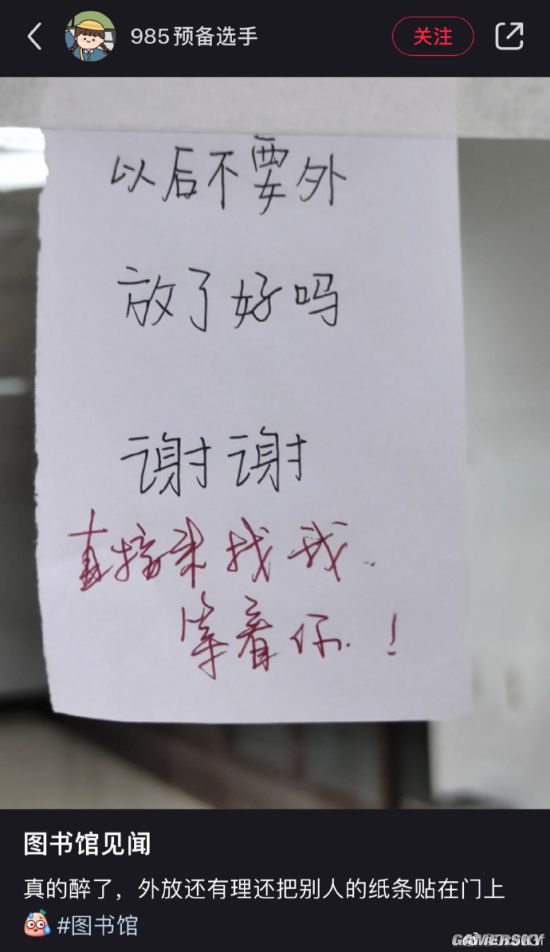 985预备选手
关注
以后不要外
放了好吗
谢谢
直接来找我.
等着你.！
图书馆见闻
真的醉了，外放还有理还把别人的纸条贴在门上
#图书馆
GAMERSKY